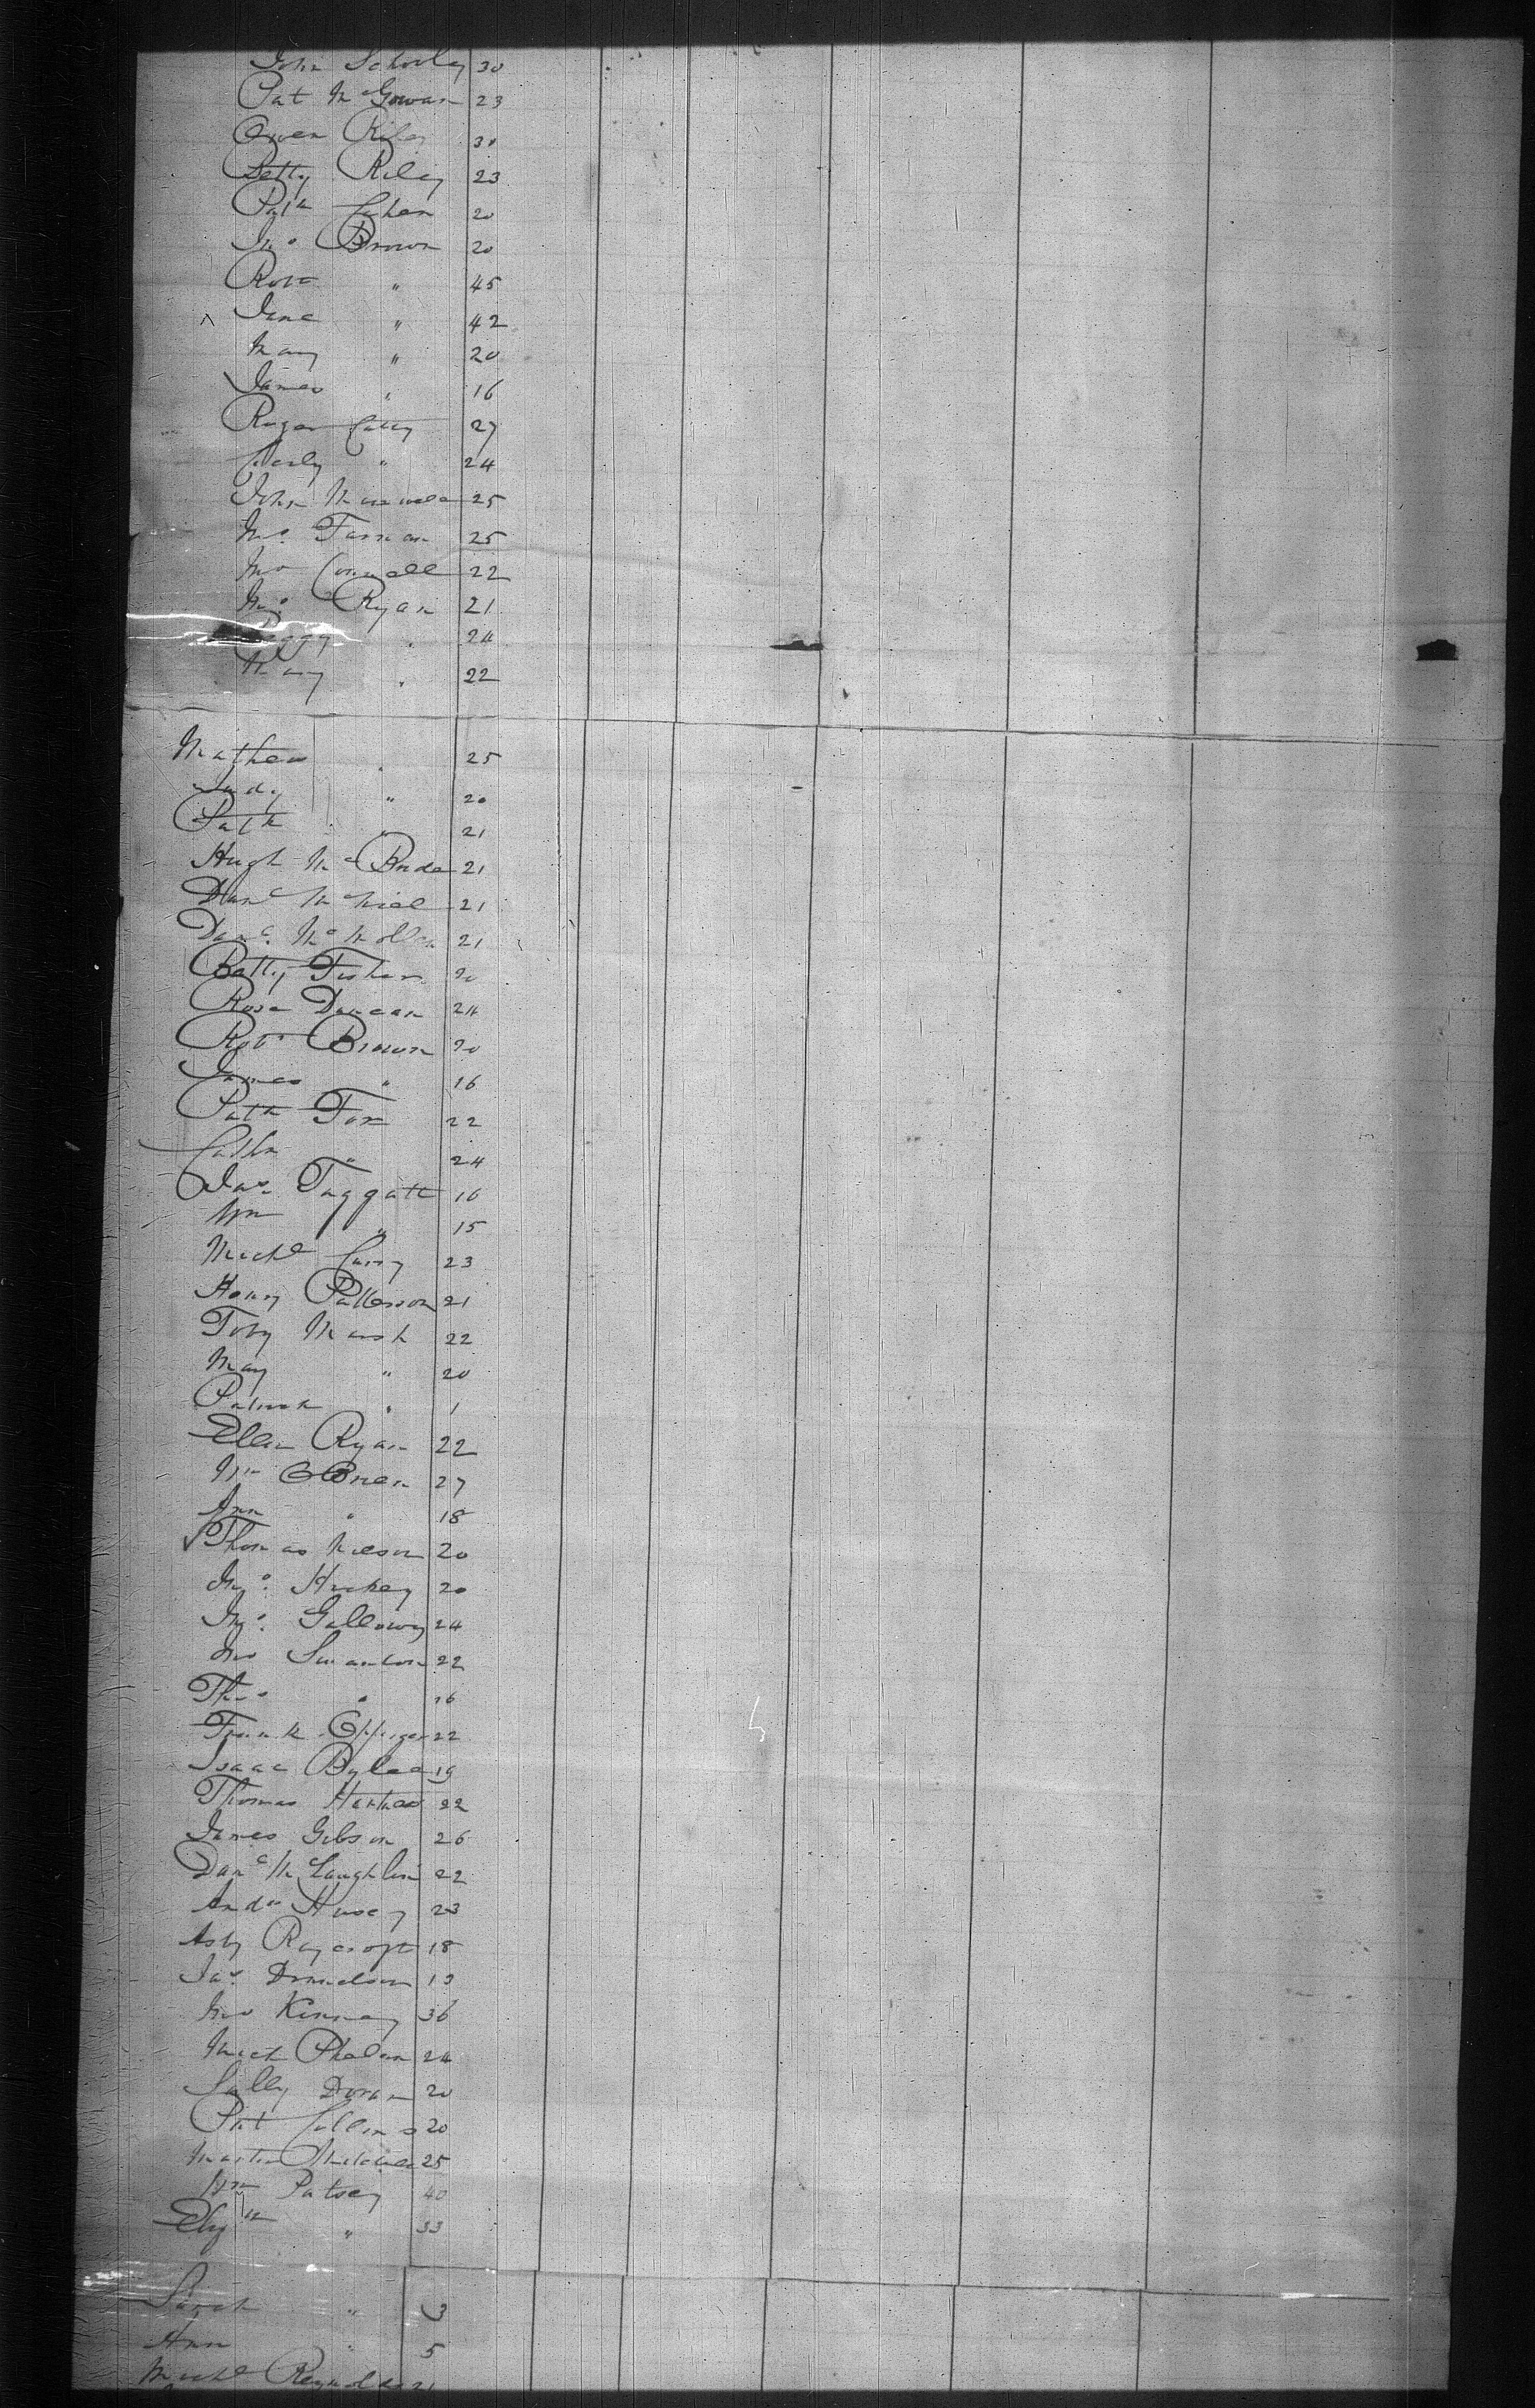 John Schooley 30
Pat McGowan 23
Owen Riley 30
Betty Riley 23
Patk Cahen 20
Jno Brown 20
Robt " 45
Jane " 42
Mary " 20
James " 16
Roger Catty 27
Cicily " 24
John 25
Jno. Farnan 25
Jno Connell 22
Jno. Ryan 21
Peggy " 24
Mary " 22
Mathew " 25
Judy " 20
Patk " 21
Hugh McBride 21
Danl McNeal 21
Danl. McMollen 21
Betty Fisher 20
Rose Duncan 24
Robt Brown 20
James " 16
Patk Fox 22
Cathn " 24
Jas. Taggatt 16
Wm " 15
Michl Carry 23
Henry Patterson 21
Toby Marsh 22
Mary " 20
Patrick " 1
Ellen Ryan 22
Wm OBrien 27
Ann " 18
Thomas Nelson 20
Jno. Hickey 20
Jno. Galloway 24
Jno Swanton 22
Thos " 16
Frank 22
Isaac Bylee 19
Thomas 22
James Gibson 26
Danl McLaughlin 22
Andw Husey 23
Asby Raycroft 18
Jas. Donnelson 19
Jno Kinney 36
Mich Phelan 24
Sally Doran 20
Pat Collins 20
Martin Mitchell 25
Wm Patsey 40
Elizth " 33
Sarah " 3
Ann " 5
Michl Reynolds 21